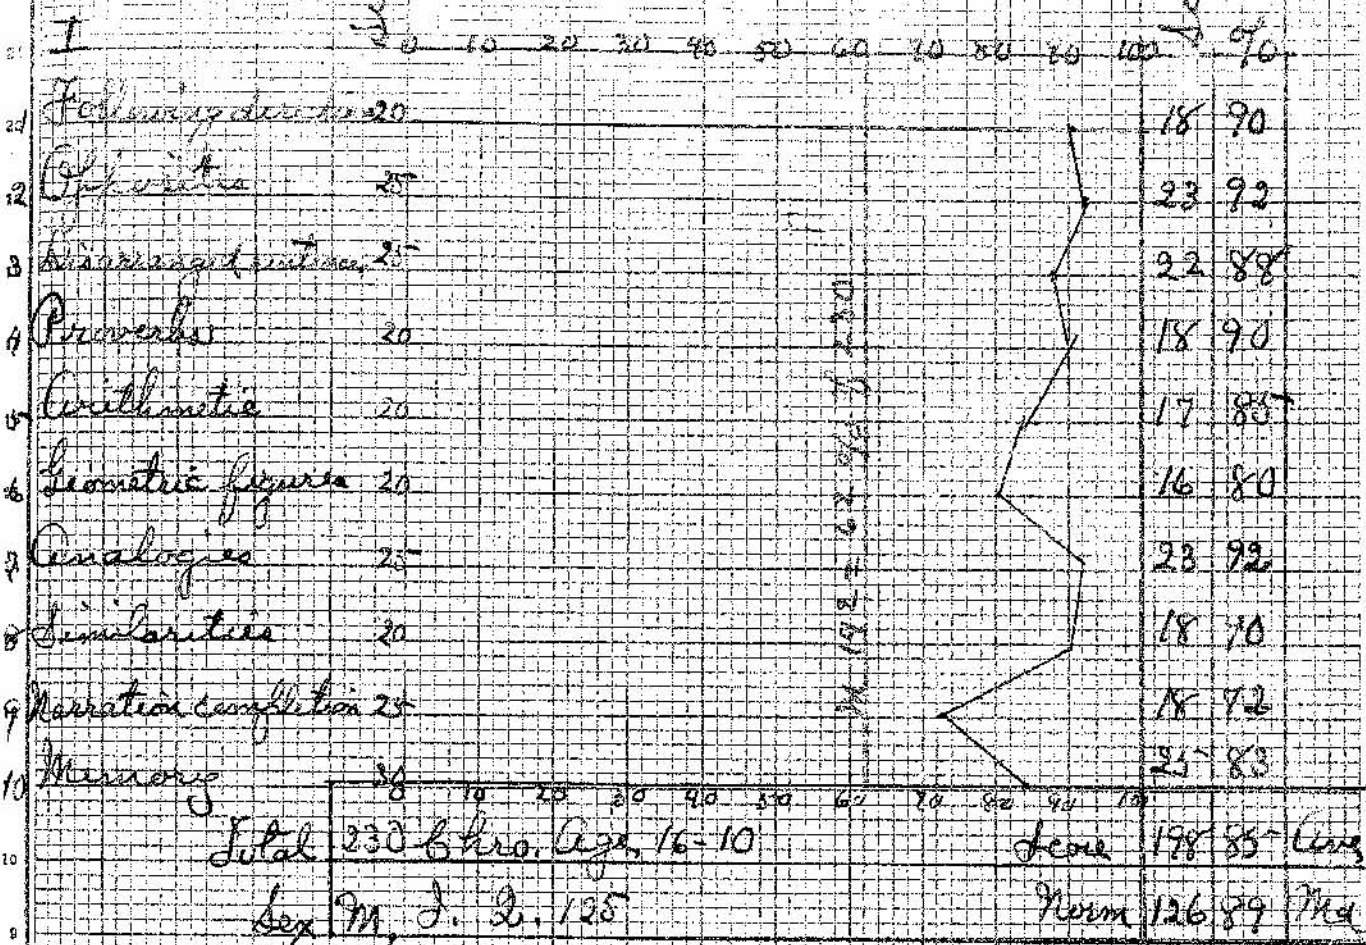 I 0 10 20 30 40 50 60 70 80 90 100 %
Following directions 20 18 90
Opposites 25 23 92
3 Disarranged sentences 25 22 88
4 Proverbs 20 18 90
5 Arithmetic 20 17 85
6 Geometric figures 20 16 80
7 Analogies 25 23 92
8 Similarities 20 18 90
9 Narration completion 25 18 72
10 Memory 30 25 83
0 10 20 30 40 50 60 70 80 90 100
Total 230 Chro. Age, 16-10 Score 198 85 Ave
Sex M. I. Q. 125 Norm 126 89 Md